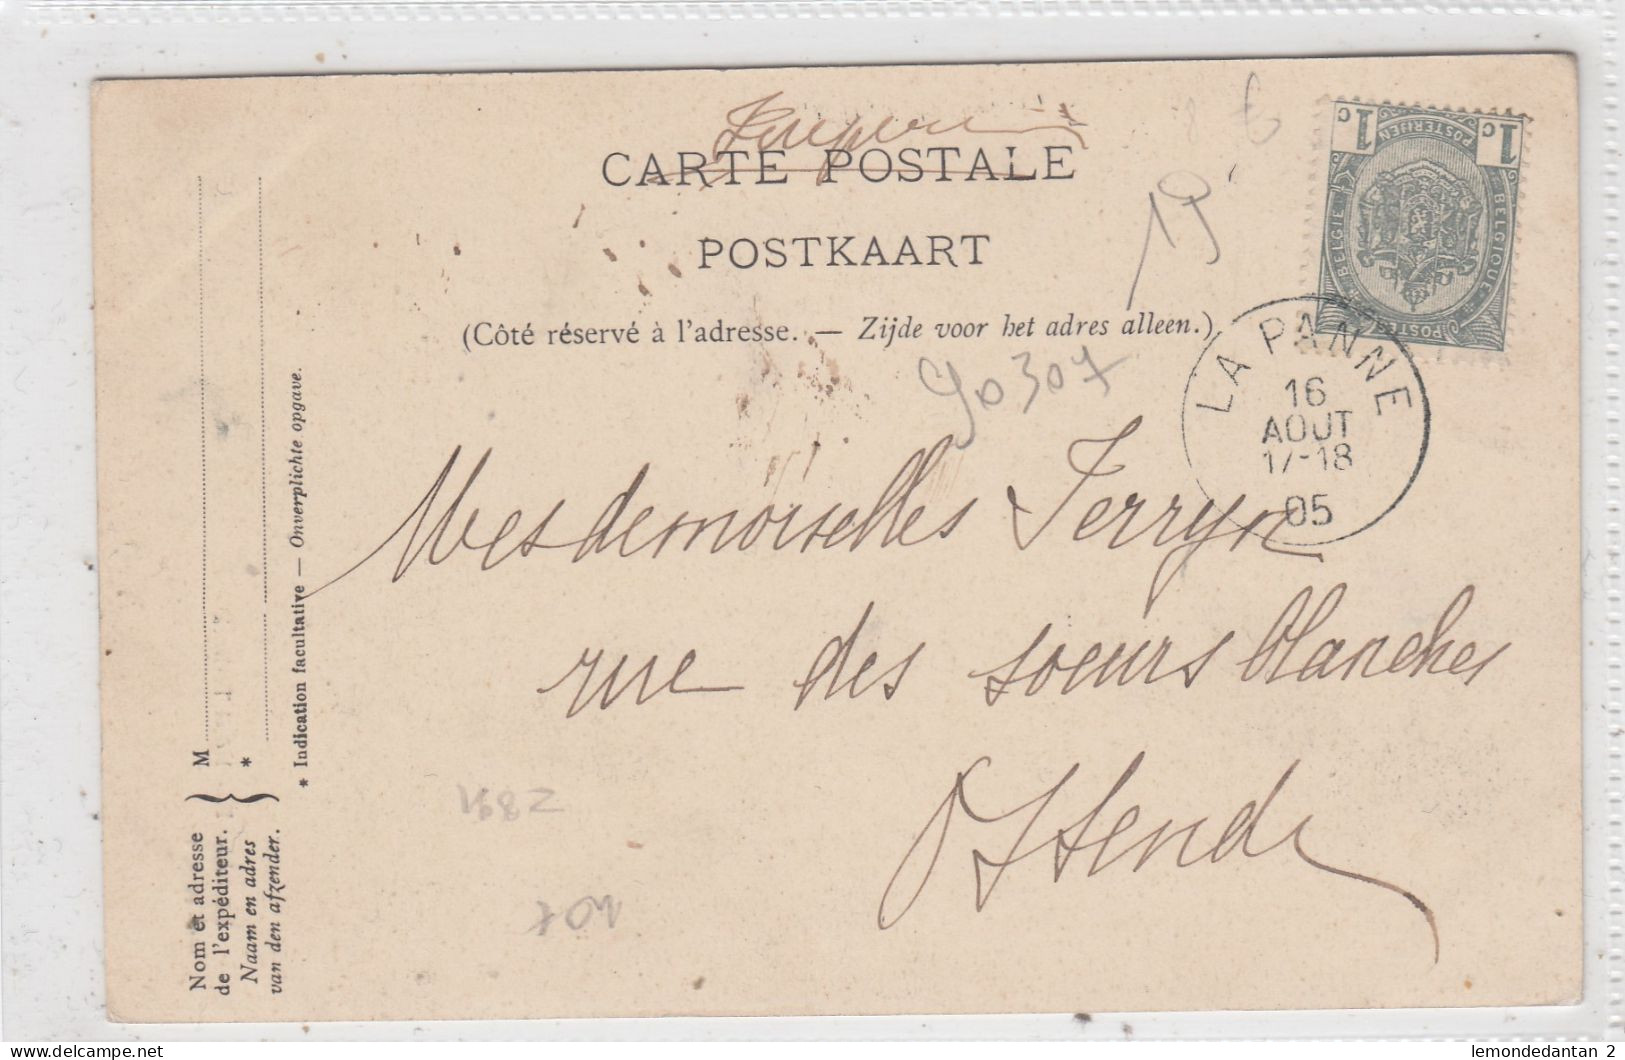 CARTE POSTALE
POSTKAART
(Côté réservé à l'adresse. — Zijde voor het adres alleen.)
1c 1c
POSTERIJEN
BELGIE BELGIQUE
POSTES
19
90307
LA PANNE
16
AOUT
17-18
05
Mesdemoiselles Ferryn
rue des soeurs blanches
Ostende
107
M
*
* Indication facultative — Onverplichte opgave.
Nom et adresse
de l'expéditeur.
Naam en adres
van den afzender.
delcampe.net
lemondedantan 2